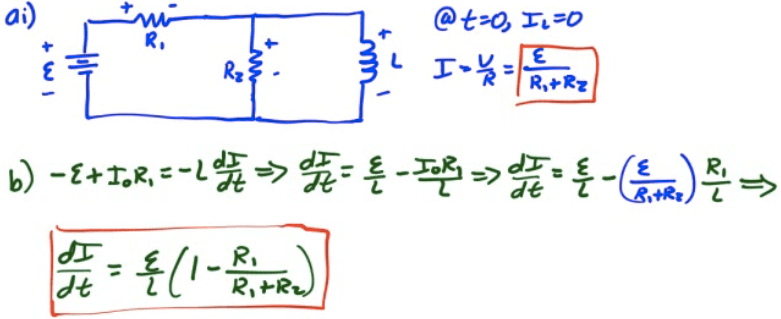 ai)
+ - @ t=0, I_L=0
R₁
+ + +
ε R₂ L I = V/R = ε/(R₁+R₂)
- - -
b) -ε+I₀R₁ = -L dI/dt ⇒ dI/dt = ε/L - I₀R₁/L ⇒ dI/dt = ε/L - (ε/(R₁+R₂)) R₁/L ⇒
dI/dt = ε/L (1 - R₁/(R₁+R₂))